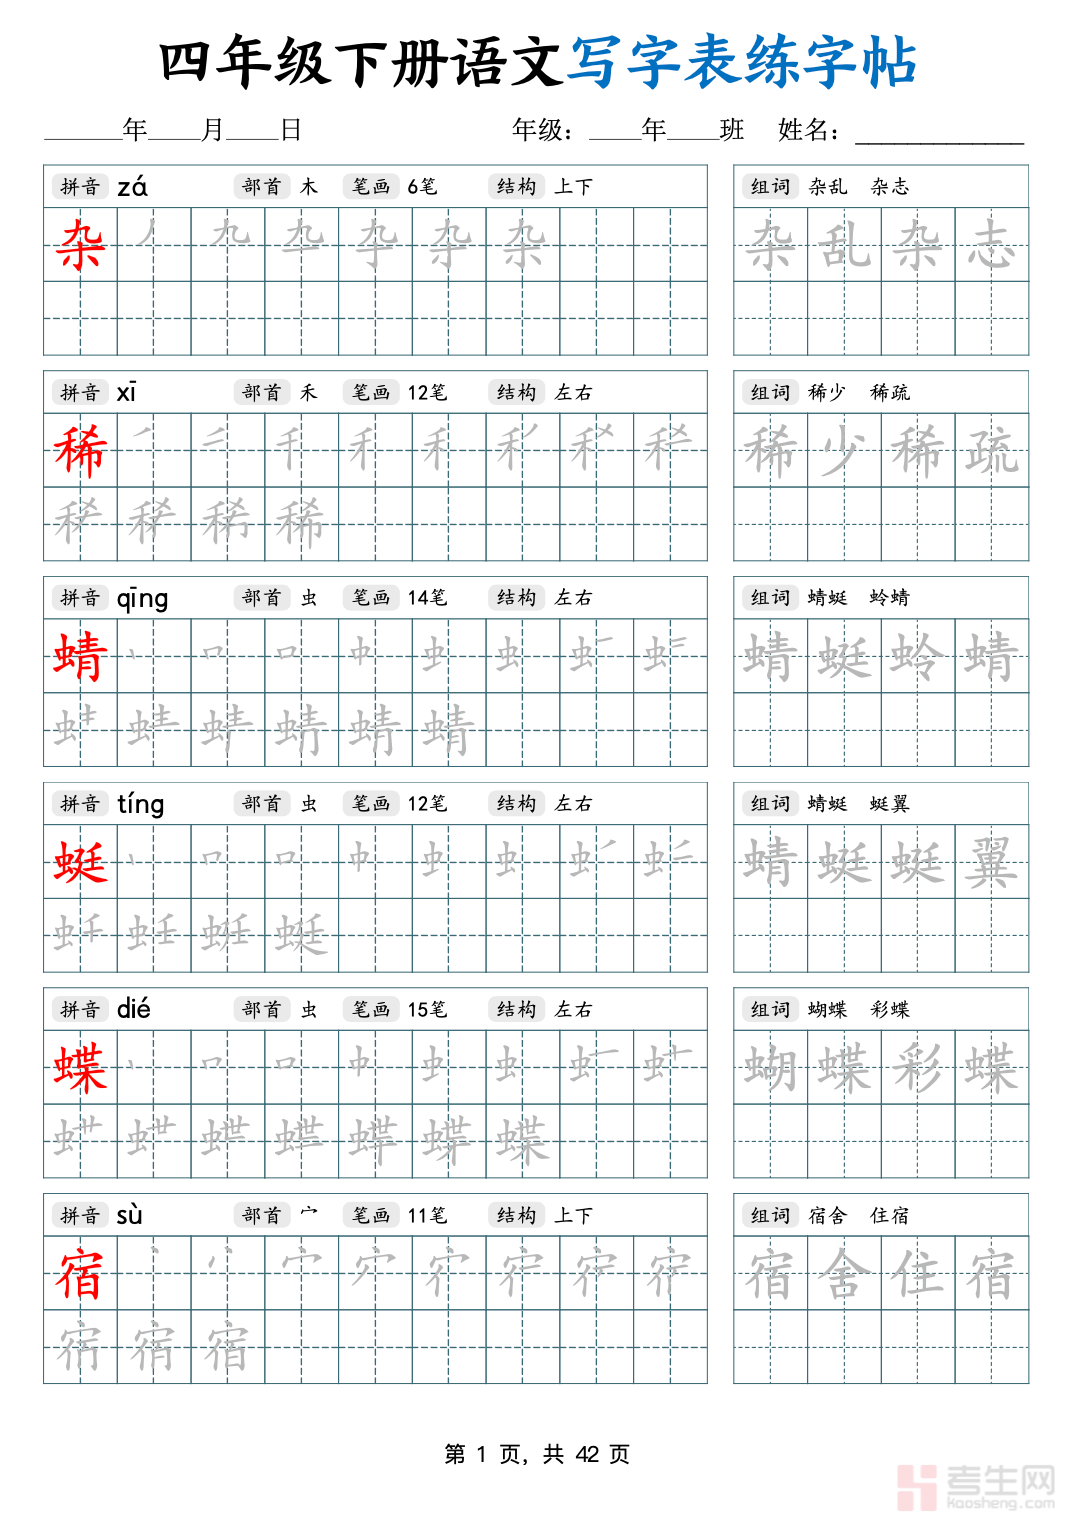 四年级下册语文写字表练字帖
______年____月____日 年级：____年____班 姓名：_____________
拼音 zá 部首 木 笔画 6笔 结构 上下 组词 杂乱 杂志
杂 杂 杂乱杂志
拼音 xī 部首 禾 笔画 12笔 结构 左右 组词 稀少 稀疏
稀 稀少稀疏
稀
拼音 qīng 部首 虫 笔画 14笔 结构 左右 组词 蜻蜓 蛉蜻
蜻 蜻蜓蛉蜻
蜻
拼音 tíng 部首 虫 笔画 12笔 结构 左右 组词 蜻蜓 蜓翼
蜓 蜻蜓蜓翼
蜓
拼音 dié 部首 虫 笔画 15笔 结构 左右 组词 蝴蝶 彩蝶
蝶 蝴蝶彩蝶
蝶
拼音 sù 部首 宀 笔画 11笔 结构 上下 组词 宿舍 住宿
宿 宿舍住宿
宿
第 1 页，共 42 页
考生网
kaosheng.com